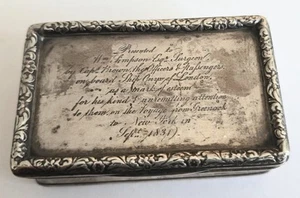 Presented to
Wm Simpson Esqr. Surgeon
by Captn. Brown the Officers & Passengers
on board Ship of London
as a mark of esteem
for his kind & unremitting attention
to them on the Voyage from Greenock
to New York in
Sepr. 1837.